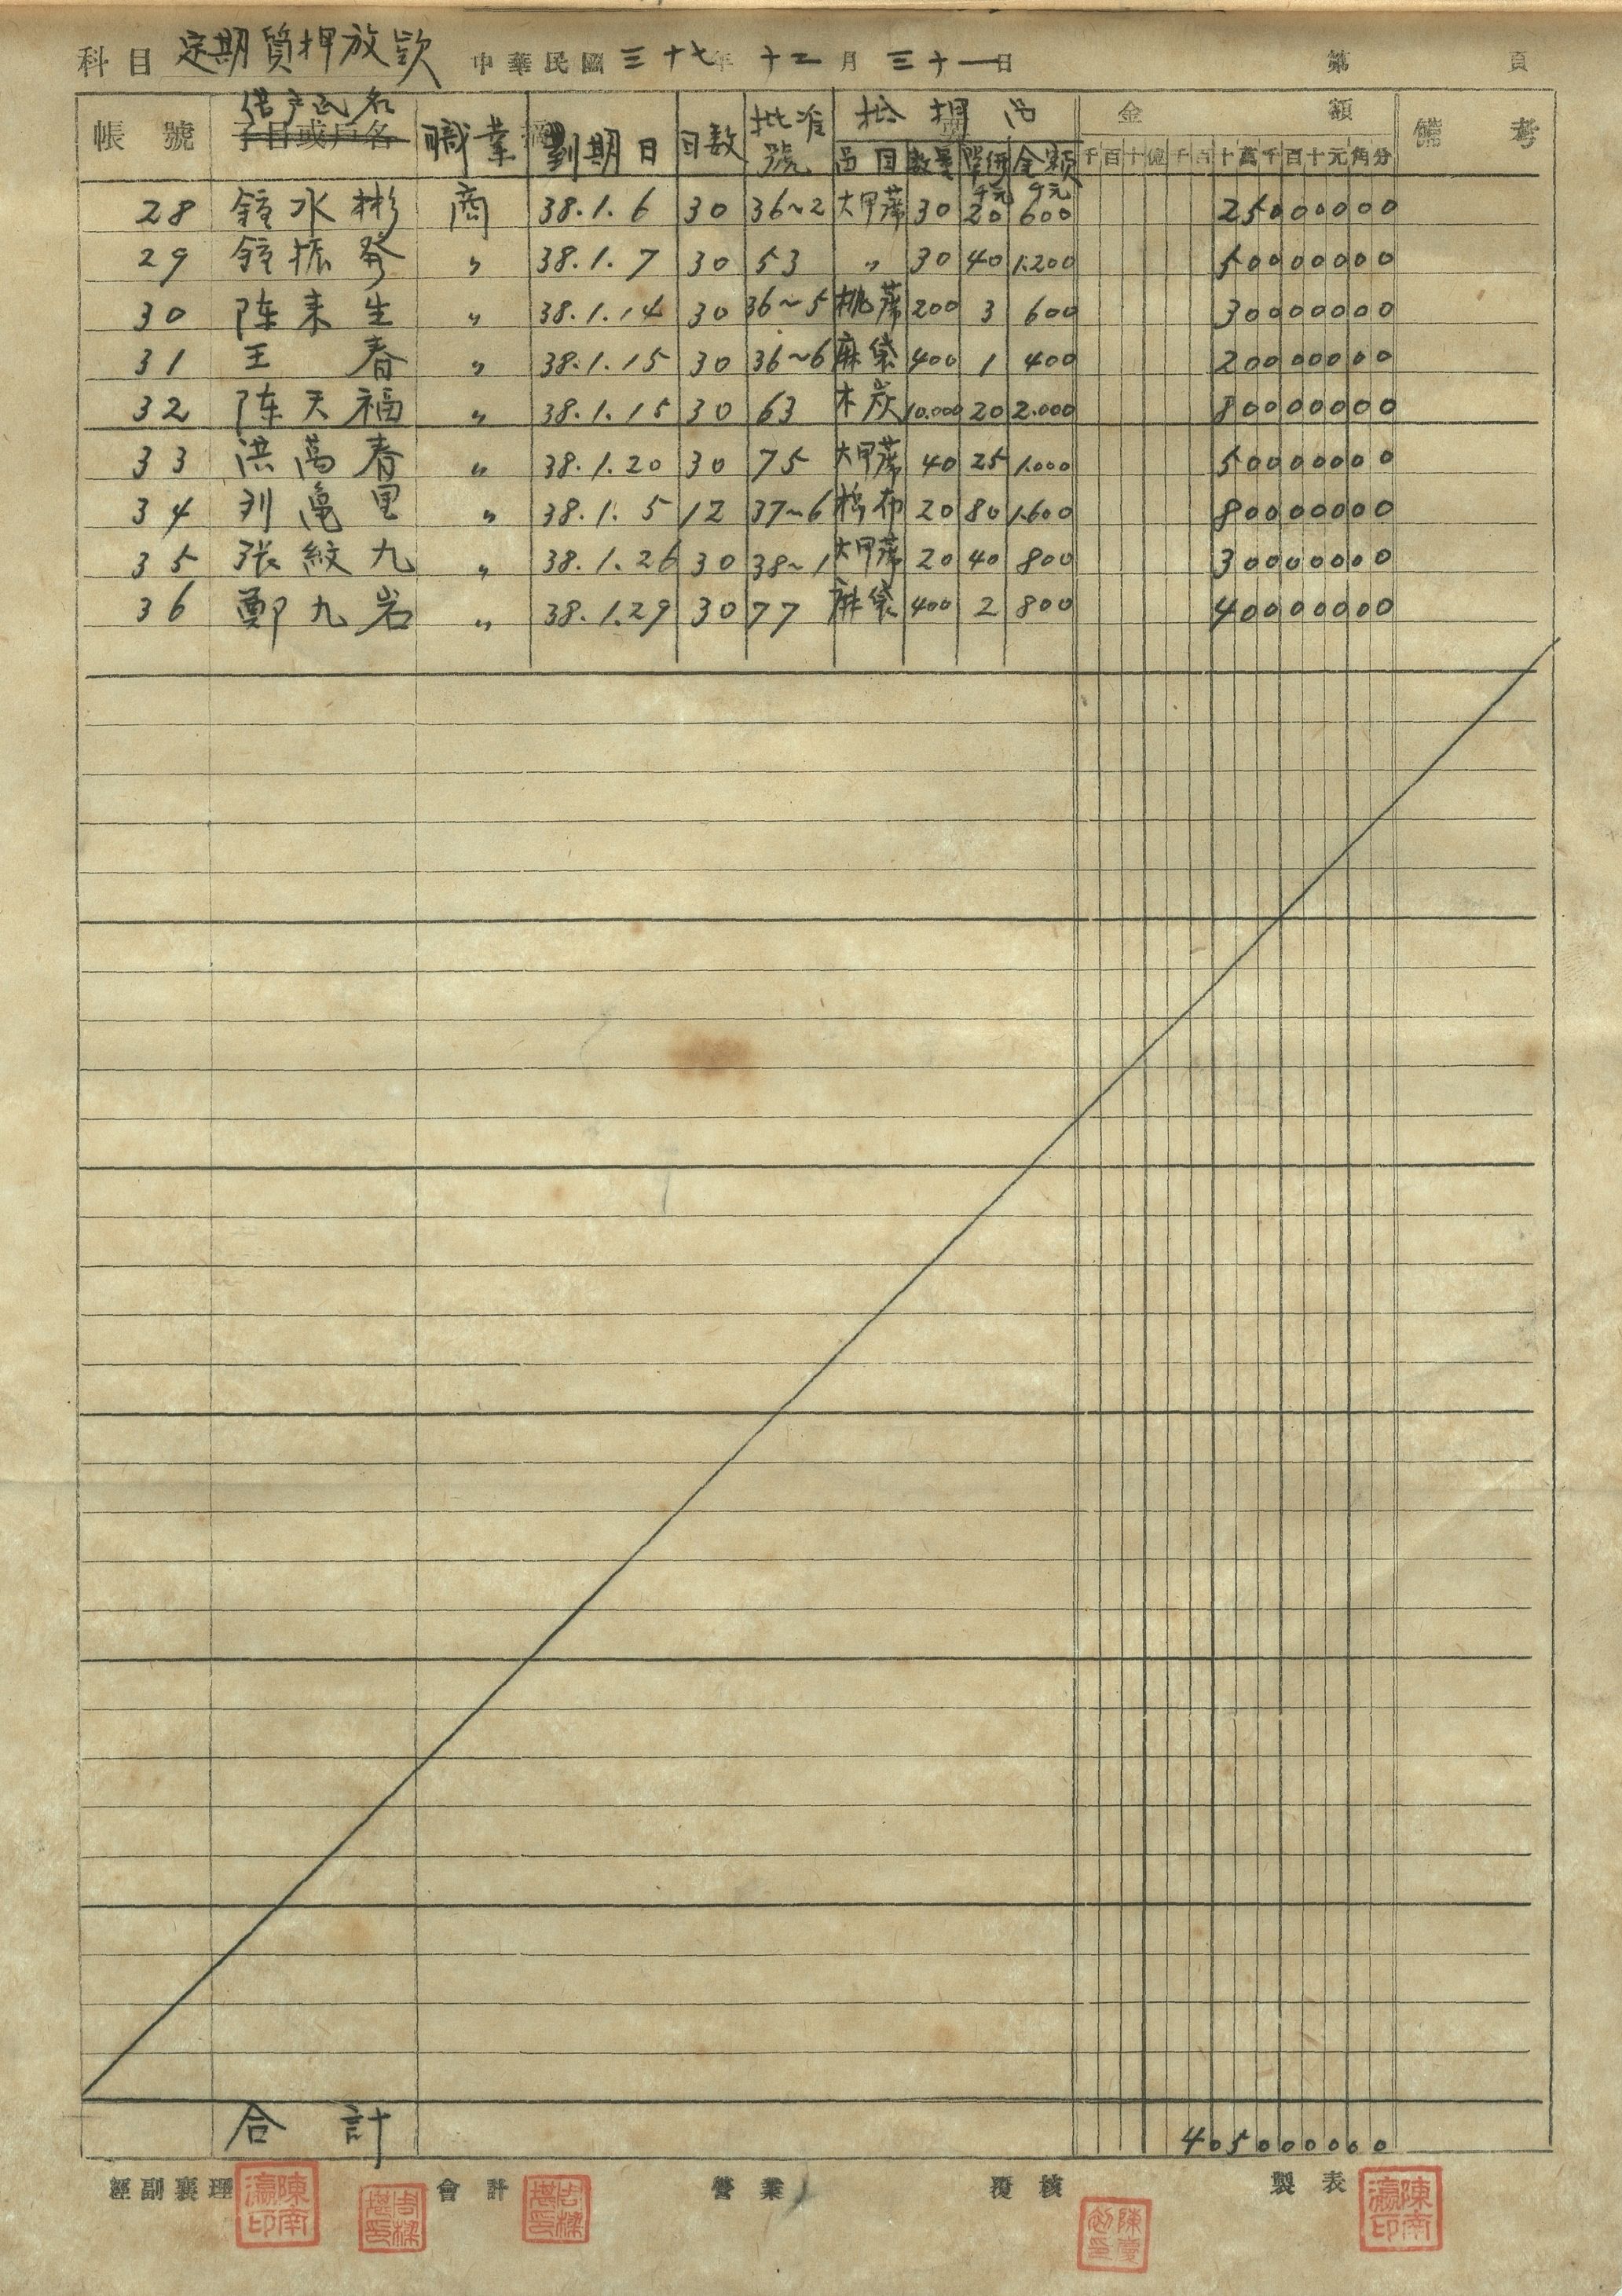 科目 定期質押放欵 中華民國三十七年十二月三十一日 第 頁
帳號 借户氏名 子目或戶名 職業 到期日 日数 批准號 抵押品 金額 備考
品目 數量 單価 金額 千百十億千百十萬千百十元角分
千元 千元
28 鐘水彬 商 38.1.6 30 36~2 大甲蓆 30 20 600 25000000
29 鐘振發 〃 38.1.7 30 53 〃 30 40 1.200 50000000
30 陈来生 〃 38.1.14 30 36~5 桃蓆 200 3 600 30000000
31 王春 〃 38.1.15 30 36~6 麻袋 400 1 400 20000000
32 陈天福 〃 38.1.15 30 63 木炭 10.000 20 2.000 80000000
33 洪萬春 〃 38.1.20 30 75 大甲蓆 40 25 1.000 50000000
34 刘萬里 〃 38.1.5 12 37~6 棉布 20 80 1.600 80000000
35 張紋九 〃 38.1.26 30 38~1 大甲蓆 20 40 800 30000000
36 鄭九岩 〃 38.1.29 30 77 麻袋 400 2 800 40000000
合計 405000000
經副襄理 陳南瀛印 會計 營業 覆核 製表 陳南瀛印